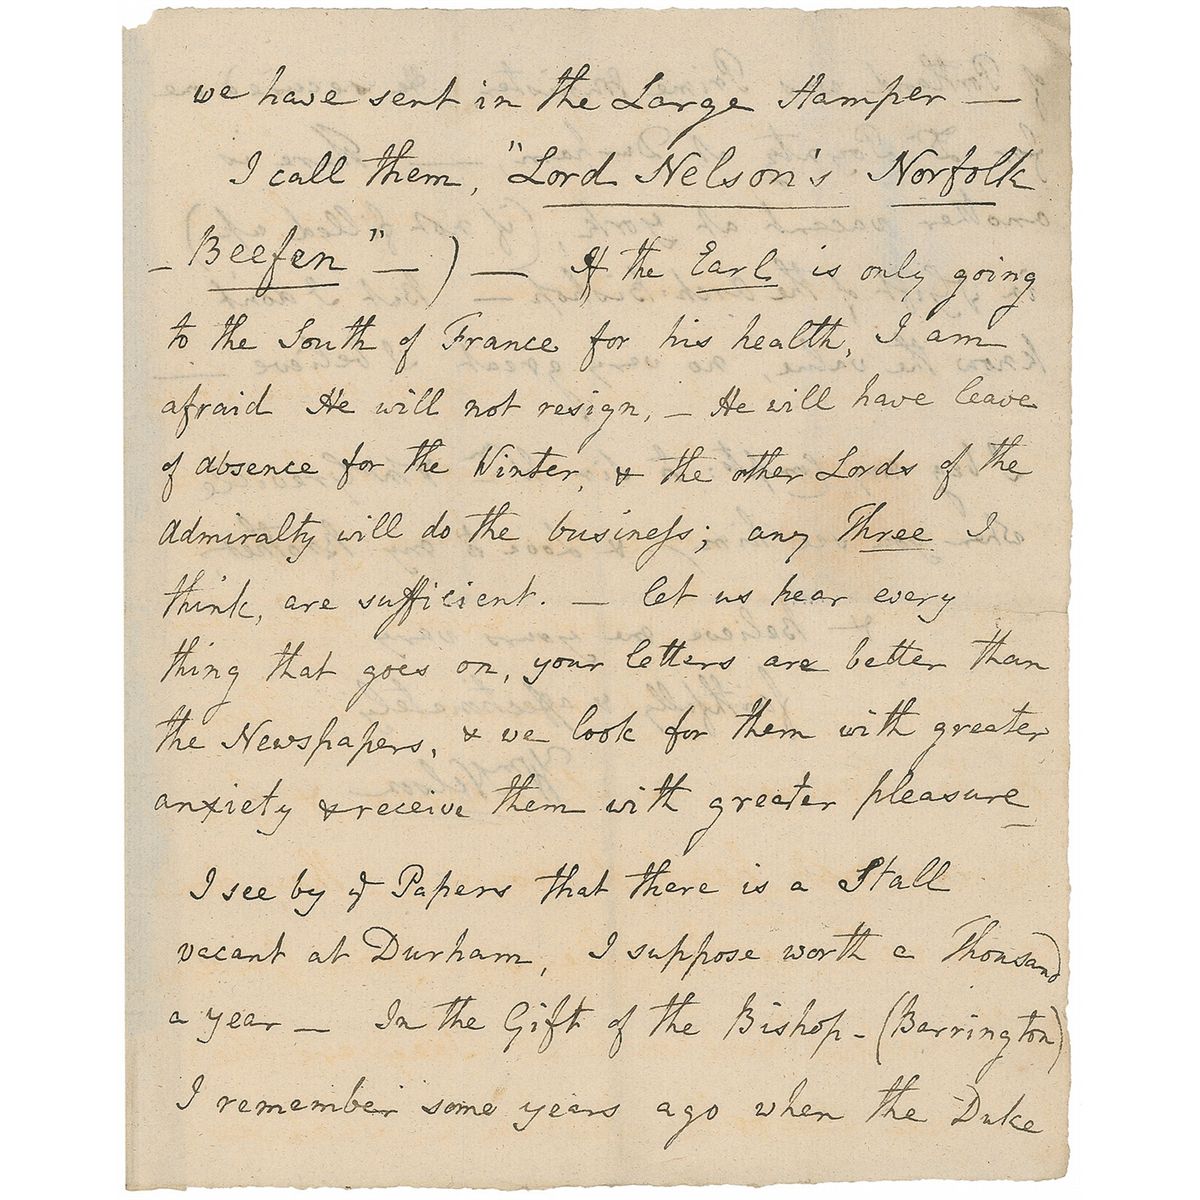 we have sent in the Large Hamper —
I call them, "Lord Nelson's Norfolk
– Beefen" – ) — If the Earl is only going
to the South of France for his health, I am
afraid He will not resign, – He will have leave
of absence for the Winter, & the other Lords of the
Admiralty will do the business; any Three I
think, are sufficient. — let us hear every
thing that goes on, your letters are better than
the Newspapers, & we look for them with greater
anxiety & receive them with greater pleasure
I see by ye Papers that there is a Stall
vacant at Durham, I suppose worth a Thousand
a year — In the Gift of the Bishop – (Barrington)
I remember some years ago when the Duke